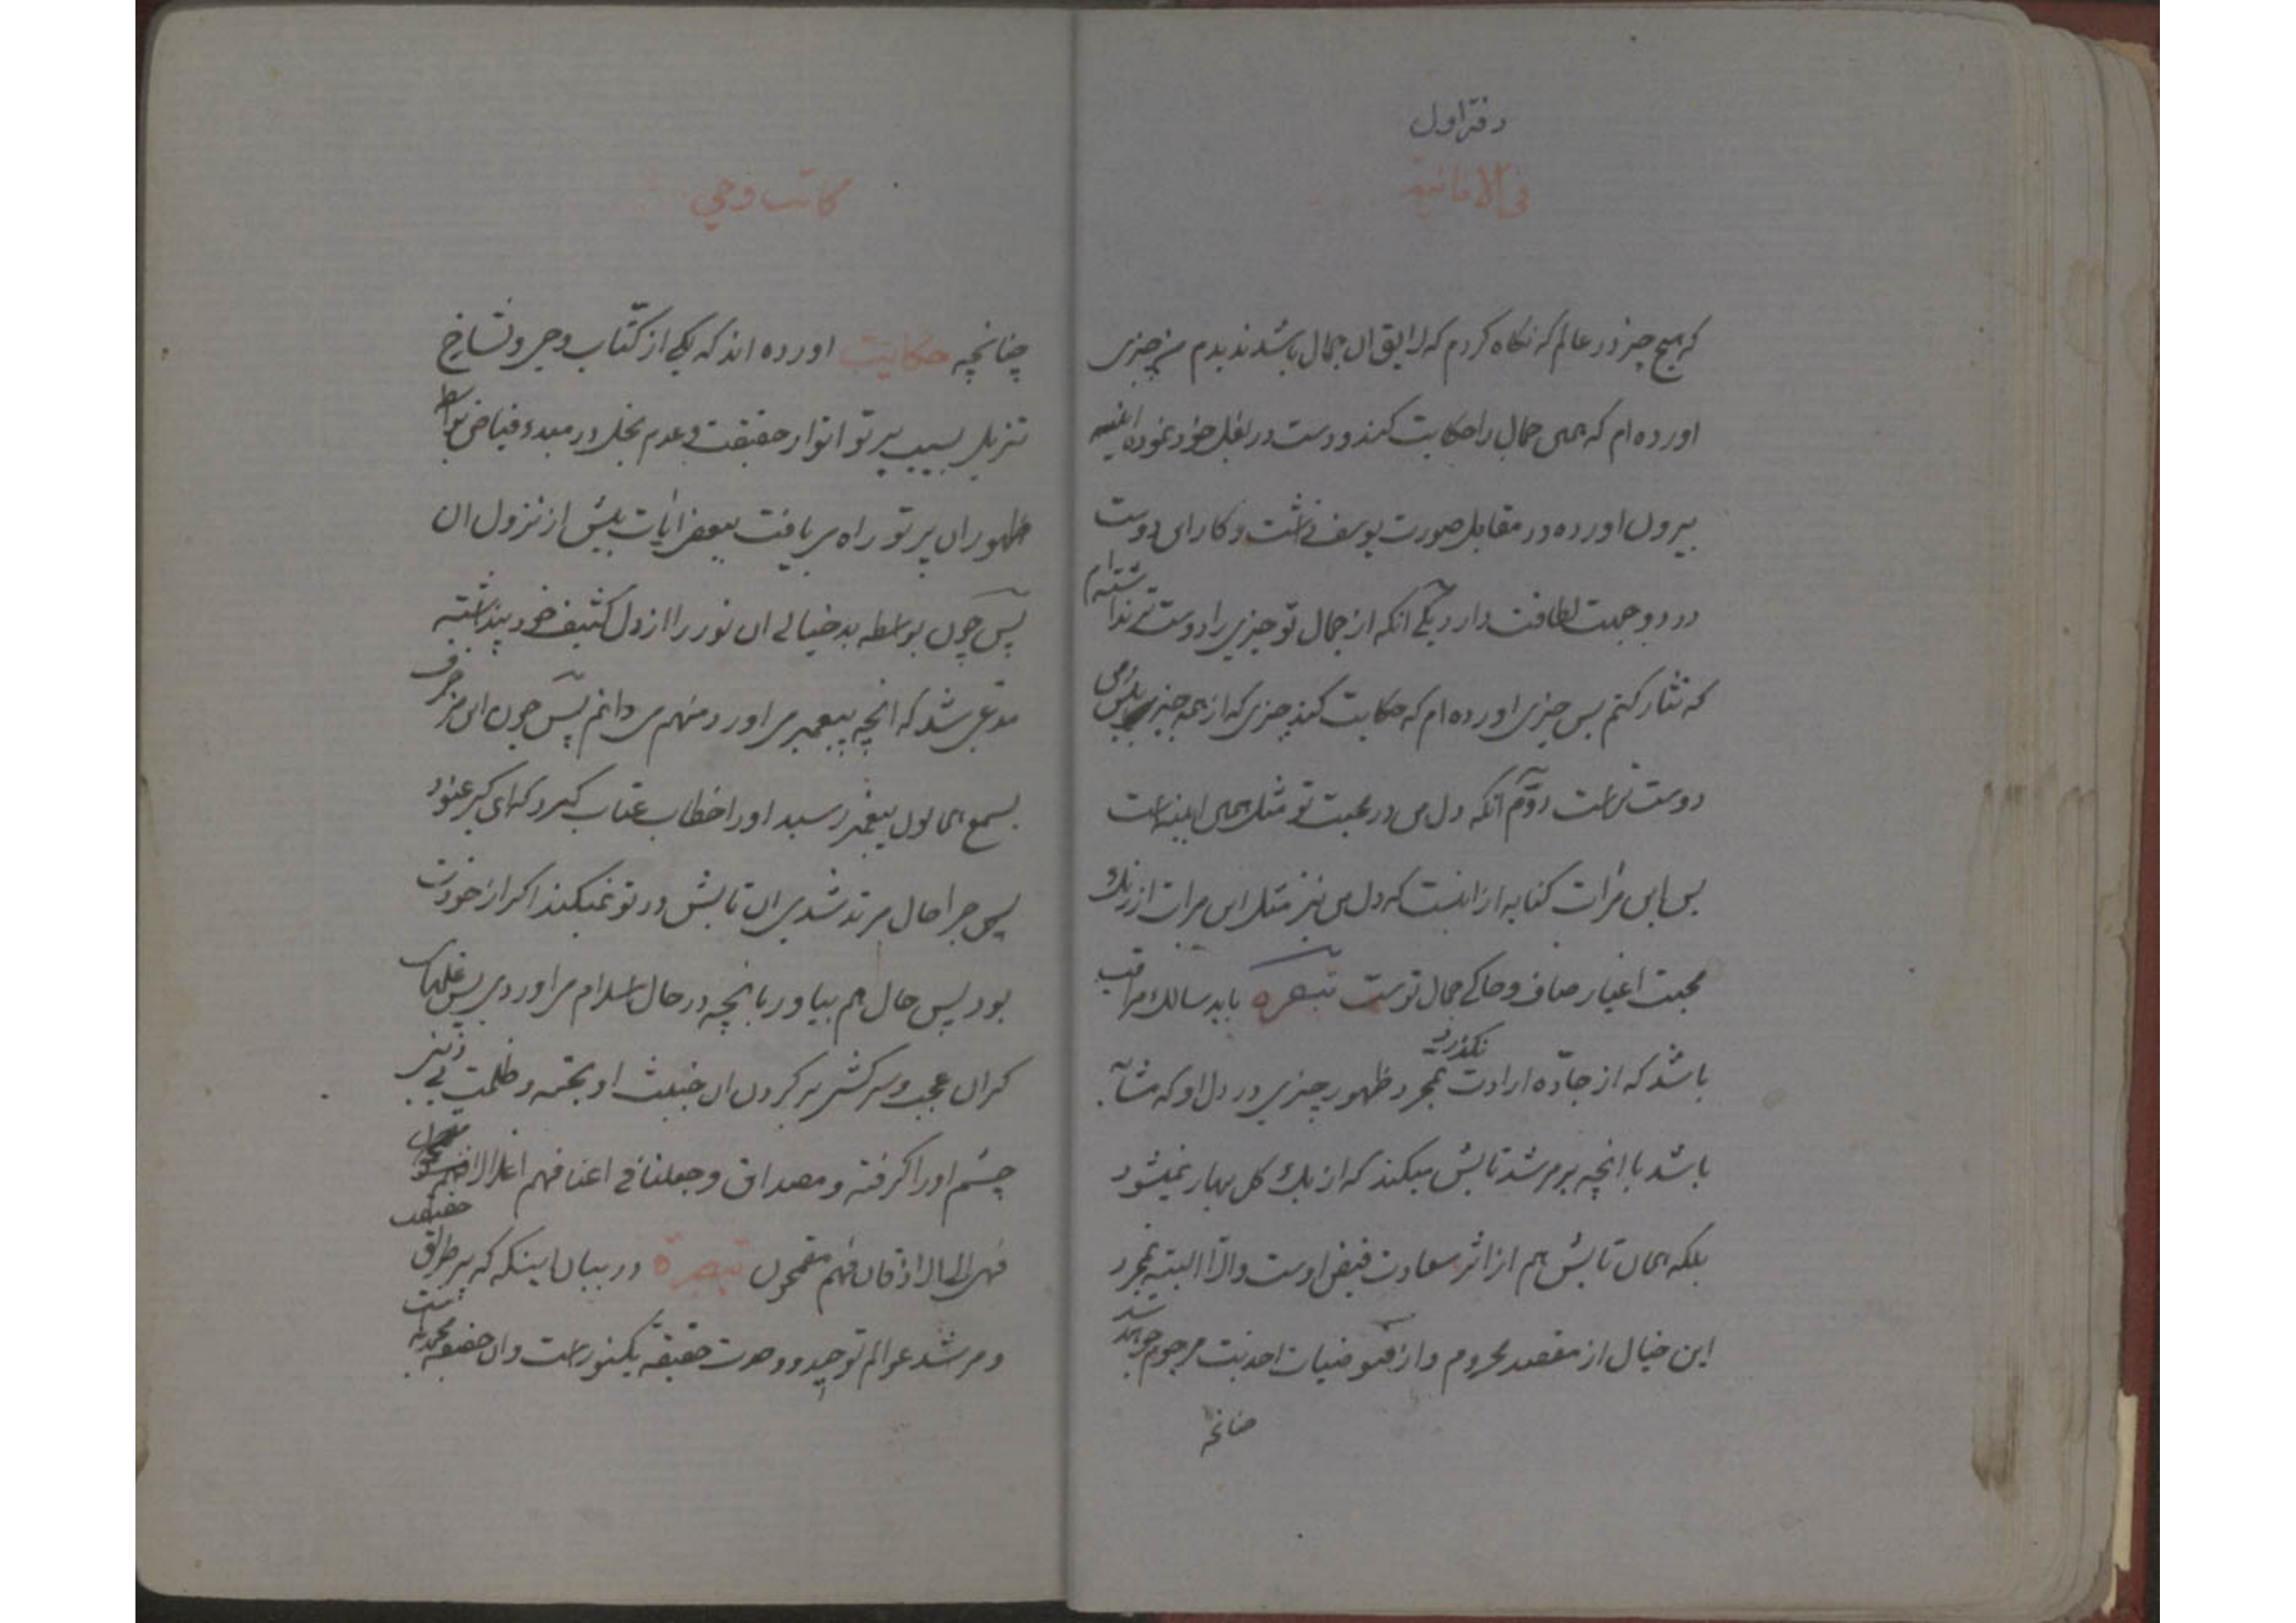 دفتر اول
فی الانانیة
که هیچ چیز در عالم که نگاه کردم که لایق ان جمال باشد ندیدم من چیزی
اورده ام که همین جمال را حکایت کند و دست در بغل خود نموده اینه
بیرون اورده در مقابل صورت یوسف داشت و کار ای دوست
در دو جهت لطافت دارد یکی انکه از جمال تو چیزی را دوست تر نداشته ام
که نثار کنم پس چیزی اورده ام که حکایت کند چیزی که از همه چیز پیش من
دوست تر است دوّم انکه دل من در محبت تو مثل همین اینه است
پس این مرات کنایه از انست که دل من نیز مثل این مرات از زنك
محبت اغیار صاف و حاکی جمال توست تبصره باید سالك مراقب
باشد که از جادّه ارادت نگذرد بمجرد ظهور چیزی در دل او که مشابه
باشد با انچه بر مرشد تابش میکند که از یك کل بهار نمیشود
بلکه همان تابش هم از اثر سعادت فیض اوست والّا البته بمجرد
این خیال از مقصد محروم و از فیوضیات احدیت مرجوم خواهد شد
چنانچه
کاتب وحی
چنانچه حکایت اورده اند که یکی از کتّاب وحی و نسّاخ
تنزیل بسبب پرتو انوار حقیقت و عدم بخل در مبدء فیاض بواسطه
ظهور ان پرتو راه می یافت ببعض ایات پیش از نزول ان
پس چون بواسطه بدخیالی ان نور را از دل کثیف خود پنداشته
مدعی شد که انچه پیغمبر می اورد منهم می دانم پس چون این مزخرف
بسمع همایون پیغمبر رسید او را خطاب عتاب کرد که ای کبر عنود
پس چرا حال مرتد شدی ان تابش در تو نمیکند اکر از خودت
بود پس حال هم بیاور بانچه در حال اسلام می اوردی پس غلهای
کران عجب و سرکشی بر کردن ان خبیث او بخته و ظلمت بی دینی
چشم او را کرفته و مصداق و جعلنا فی اعناقهم اغلالا
فهی الی الاذقان فهم مقمحون تبصرة در بیان اینکه که پیر طریق حقیقت
و مرشد عوالم توحید و وحدت حقیقة یکنور است وان حقیقة محمدیه است